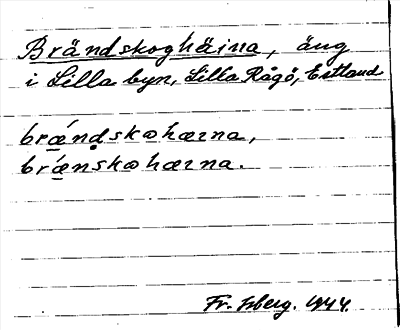 Brändskoghäina, äng
i Lilla byn, Lilla Rågö, Estland
brǽnḍskωhæɩna,
brǽnskωhæɩna.
Fr. Isberg. 1944.